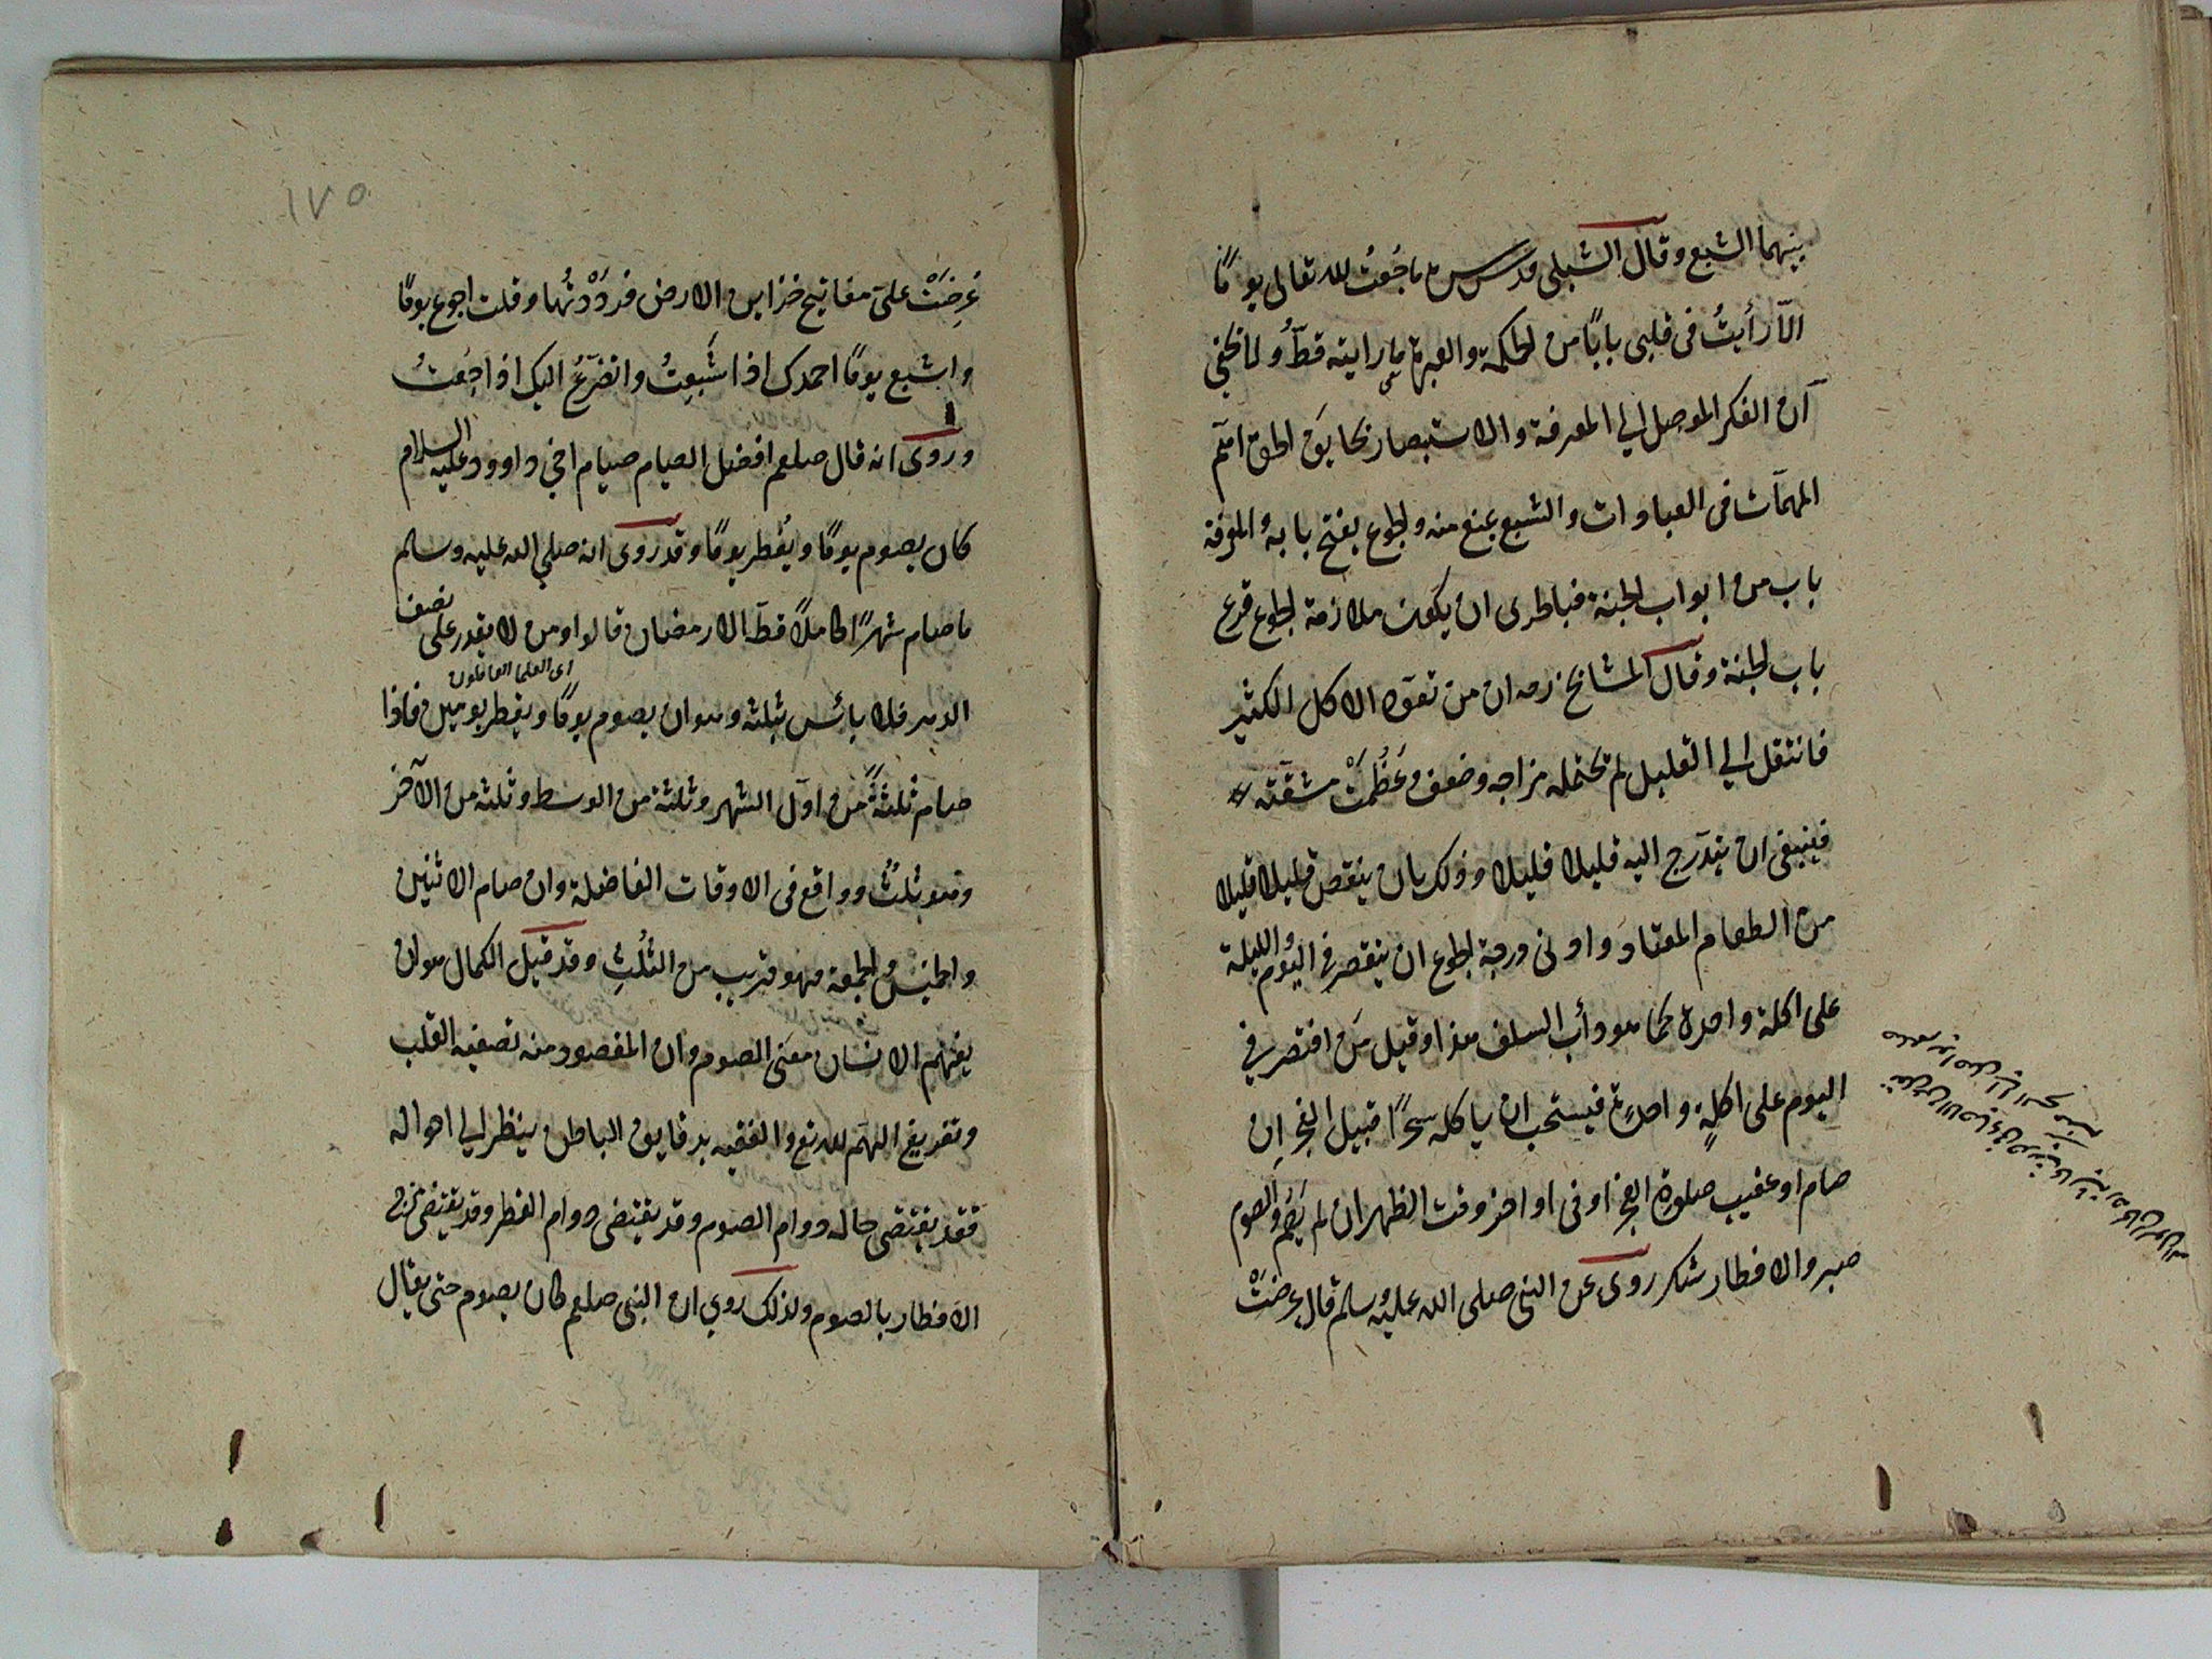 بينهما الشبع وقال الشبلى قدس سره ما جُعتُ لله تعالى يومًا
الّا رأيتُ فى قلبى بابًا من الحكمة والعبرة ما رايته قطُّ ولا يخفى
انّ الفكر الموصل الى المعرفة والاستبصار بحقايق الحق اهمّ
المهمّات فى العبادات والشبع يمنع منه والجوع يفتح بابه والمعرفة
باب من ابواب الجنة فبالحرى ان يكون ملازمة الجوع قرع
باب الجنة وقال المشايخ رحه ان من تعوّد الاكل الكثير
فانتقل الى القليل لم يحتمله مزاجه وضعف وعَظُمَتْ مشقّته
فينبغى ان يتدّرج اليه قليلا قليلا وذلك بان ينقص قليلا قليلا
من الطعام المعتاد وادنى درجة الجوع ان يقتصر فى اليوم والليلة
على اكلة واحدة كما هو دأب السلف هذا وقيل مَن اقتصر فى
اليوم على اكلةٍ واحدةٍ فيستحب ان ياكله سحرًا قبيل الفجر اِن
صام او عقيب صلوة الفجر او فى اواخر وقت الظهر ان لم يَصُم والصوم
صبر والافطار شكر روى عن النبى صلى الله عليه وسلم قال عرضتْ
١٧٥
عُرِضَتْ علىّ مفاتيح خزاين الارض فردَدْتُها وقلت اجوع يومًا
واشبع يومًا احمدك اذا شَبِعتُ واتضرّعُ اليك اذا جُعتُ
وروى انه قال صلعم افضل الصيام صيام اخى داوود عليه السلام
كان يصوم يومًا ويُفطر يومًا وقد روى انه صلى الله عليه وسلم
ما صام شهرًا كاملًا قطّ الا رمضان قالوا ومن لا يقدر على نصف
اى العلما العاملون
الدهر فلا بائس بثلثه وهو ان يصوم يومًا ويفطر يومين فاذا
صام ثلثةً من اوّل الشهر وثلثة من الوسط وثلثة من الآخر
وهو ثلثٌ وواقع فى الاوقات الفاضلة وان صام الاثنين
والخميس والجمعة فهو قريب من الثلُثِ وقد قيل الكمال هو ان
يفهم الانسان معنى الصوم وان المقصود منه تصفية القلب
وتفريغ الهمّ لله تع والفقيه بدقايق الباطن ينظر الى احواله
فقد يقتضى حاله دوام الصوم وقد يقتضى دوام الفطر وقد يقتضى مزج
الافطار بالصوم ولذلك روى ان النبى صلعم كان يصوم حتى يقال